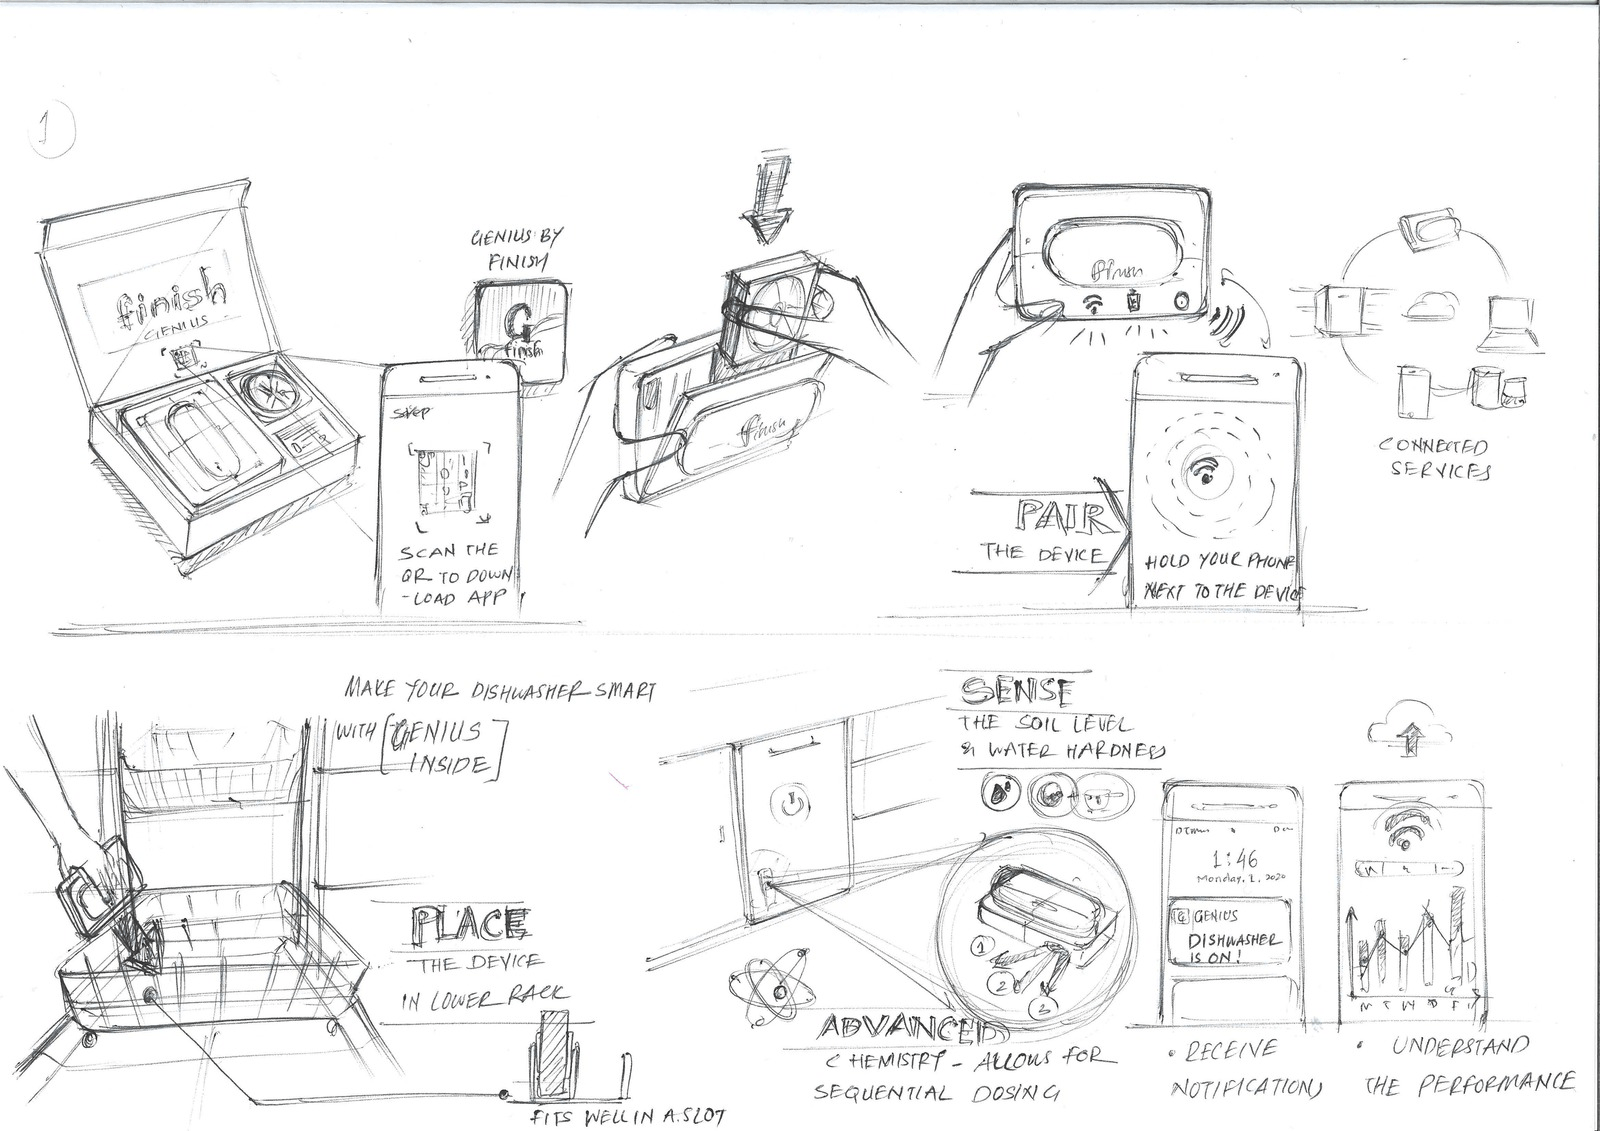 1
finish
GENIUS
GENIUS BY
FINISH
G
finish
SCAN THE
QR TO DOWN
-LOAD APP
finish
finish
PAIR
THE DEVICE
HOLD YOUR PHONE
NEXT TO THE DEVICE
CONNECTED
SERVICES
MAKE YOUR DISHWASHER SMART
WITH [GENIUS
INSIDE]
PLACE
THE DEVICE
IN LOWER RACK
FITS WELL IN A SLOT
SENSE
THE SOIL LEVEL
& WATER HARDNESS
1
2
3
ADVANCED
CHEMISTRY - ALLOWS FOR
SEQUENTIAL DOSING
1:46
Monday, 2, 2020
G GENIUS
DISHWASHER
IS ON!
• RECEIVE
NOTIFICATIONS
M T W
• UNDERSTAND
THE PERFORMANCE